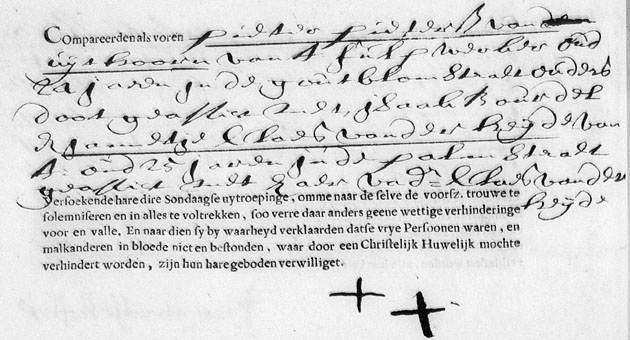 Compareerden als voren pieter
van A fulpwerker oud
jaren in de goutblom straat ouders
doot geassist met Isaak
Claes vander heijde van
A: oud 25 jaren in de palm straat
geassist met haer vadr Claes vander
Versoekende hare dire Sondaagse uytroepinge, omme naar de selve de voorsz. trouwe te heijde
solemniseren en in alles te voltrekken, soo verre daar anders geene wettige verhinderinge
voor en valle. En naar dien sy by waarheyd verklaarden datse vrye Persoonen waren, en
malkanderen in bloede niet en bestonden, waar door een Christelijk Huwelijk mochte
verhindert worden, zijn hun hare geboden verwilliget.